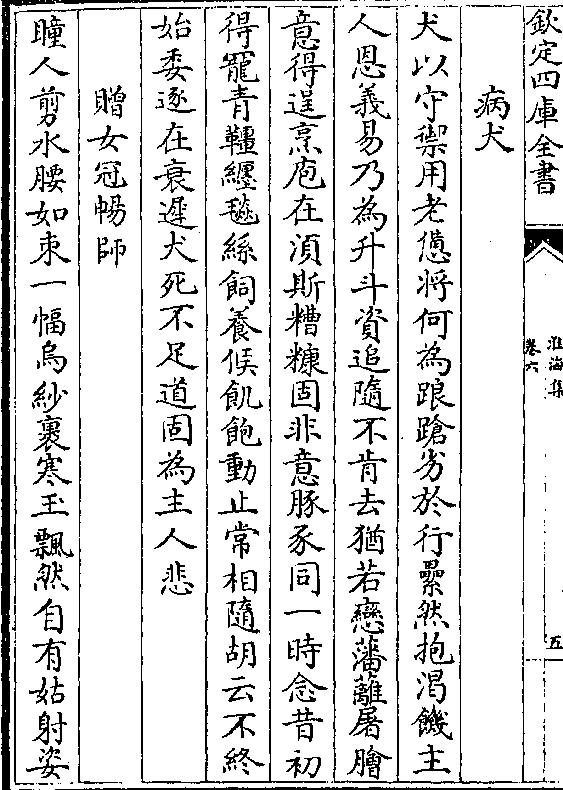 欽定四庫全書
淮海集
卷六
五
病犬
犬以守禦用老憊將何為踉蹌劣於行纍然抱渴饑主
人恩義易乃為升斗資追隨不肯去猶若戀藩蘺屠膾
意得逞烹庖在須斯糟糠固非意豚豕同一時念昔初
得寵青韁纏毧絲飼養候飢飽動止常相隨胡云不終
始委逐在衰遲犬死不足道固為主人悲
贈女冠暢師
瞳人剪水腰如束一幅烏紗裹寒玉飄然自有姑射姿